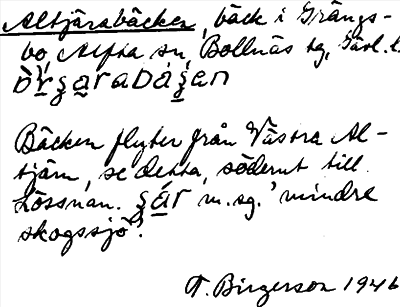 Altjärabäcken, bäck i Grängs-
bo, Alfta sn, Bollnäs tg, Gävl. l.
Bäcken flyter från Västra Al-
tjärn, se detta, söderut till
Lössnan. m. sg. 'mindre
skogssjö'.
T. Birgerson 1946